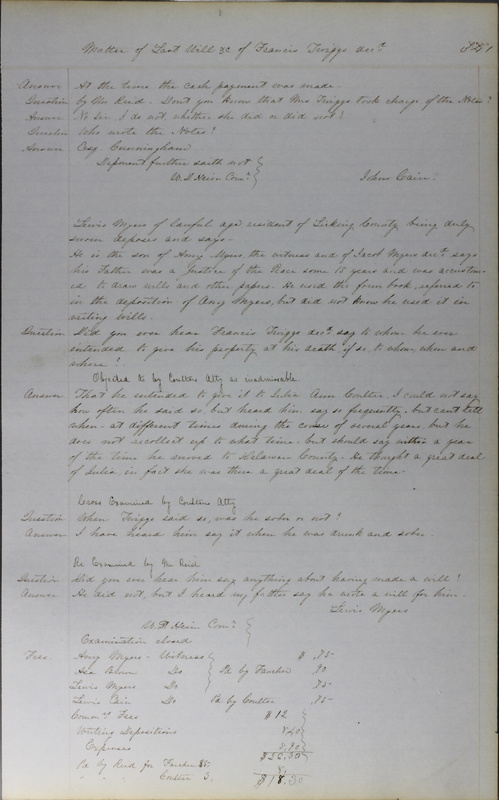 Matter of Last Will &c of Francis Twiggs decd.
Answer At the time the cash payment was made.
Question by Mr Reid. Dont you know that Mrs Twiggs took charge of the Notes?
Answer No Sir, I do not, whether she did or did not?
Question Who wrote the Notes?
Answer Esq. Cunningham
Deponent further saith not
W. D. Hein Comr.
John Cain.
Lewis Myers of lawful age resident of Licking County being duly
sworn deposes and says.
He is the son of Amy Myers, the witness and of Jacob Myers decd. says
his Father was a Justice of the Peace some 15 years and was accustom-
ed to draw wills and other papers. He used the form book, referred to
in the deposition of Amy Myers, but did not know he used it in
writing wills.
Question Did you ever hear Francis Twiggs decd. say to whom he ever
intended to give his property at his death, if so, to whom, when and
where?
Objected to by Coulters Atty as inadmissable
Answer That he intended to give it to Julia Ann Coulter. I could not say
how often he said so, but heard him say so frequently, but cant tell
when at different times during the course of several years, but he
does not recollect up to what time, but should say within a year
of the time he moved to Delaware County. He thought a great deal
of Julia, in fact she was there a great deal of the time.
Cross Examined by Coulters Atty
Question When Twiggs said so, was he sober or not?
Answer I have heard him say it when he was drunk and sober.
Re Examined by Mr Reid
Question Did you ever hear him say anything about having made a will?
Answer He did not, but I heard my father say he wrote a will for him.
Lewis Myers
W. D. Hein Comr.
Examination closed
Fees. Amy Myers - Witness $ .75
Asa Brown Do Pd by Fancher 90
Lewis Myers Do .75
Lewis Cain Do Pd by Coulter .75
Comrs. Fees $12
Writing Depositions
Expenses
Pd by Reid for Fancher 25.
" " " Coulter 3.